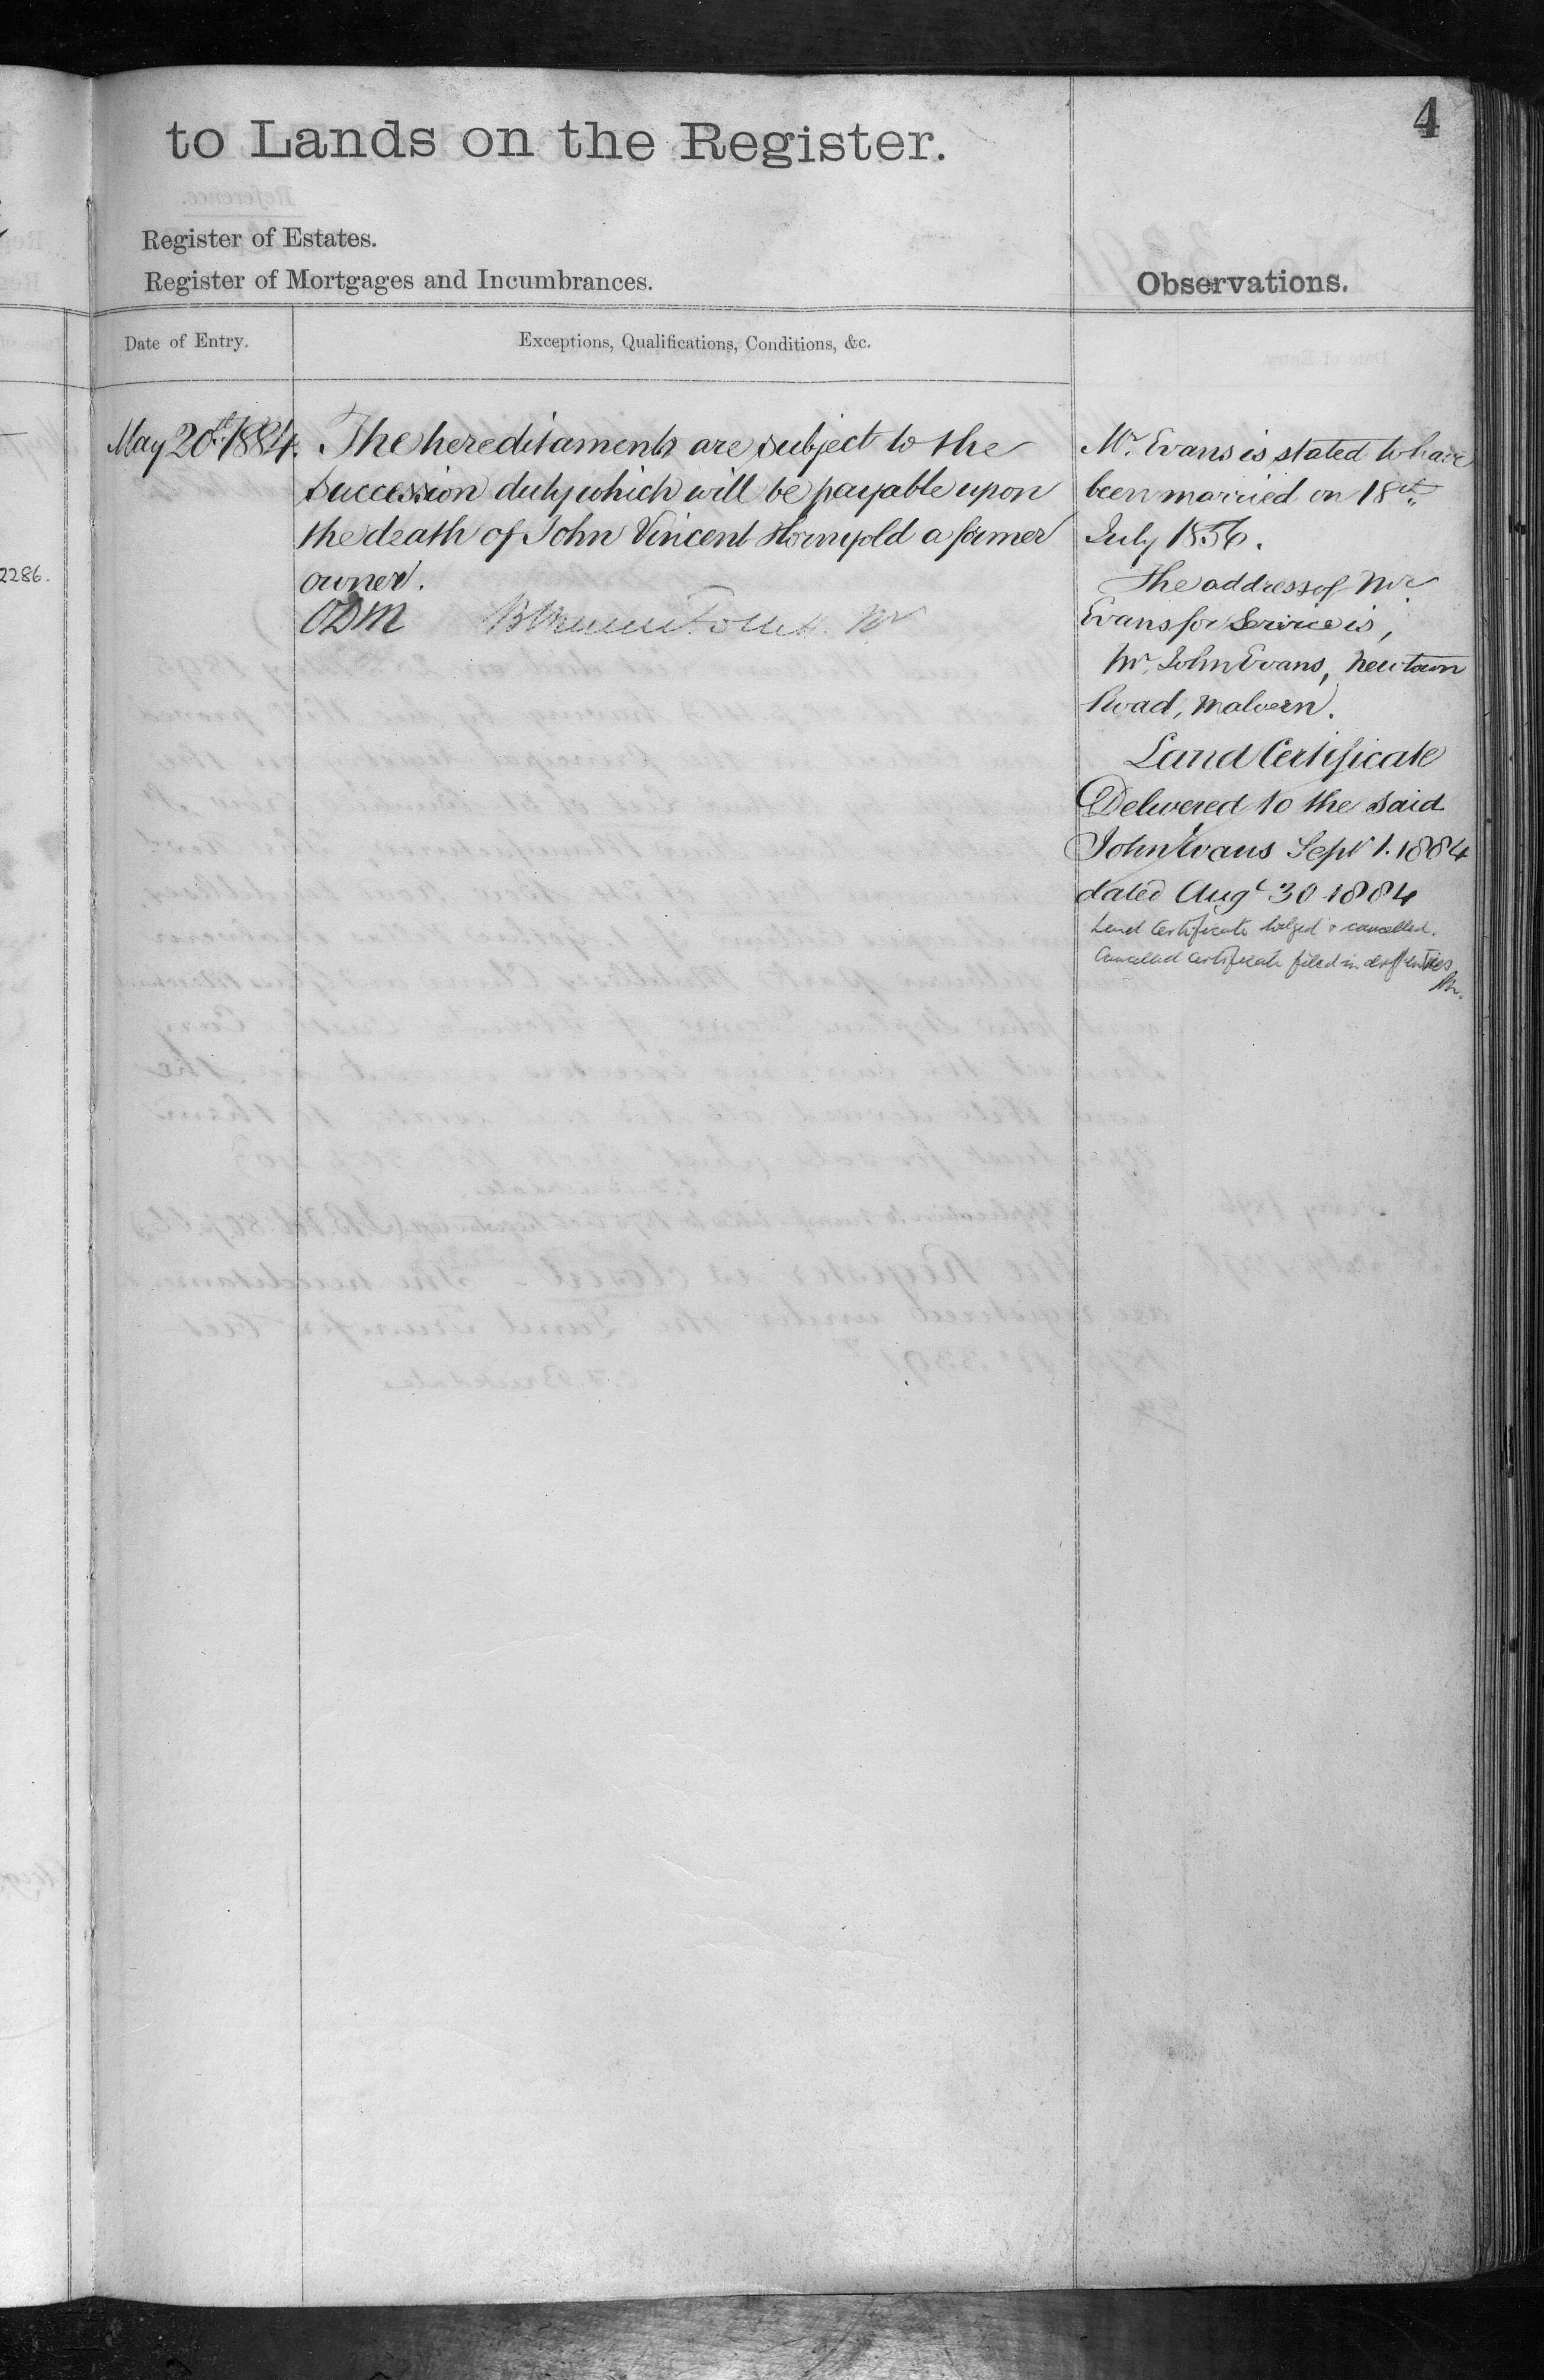 4
to Lands on the Register.
Register of Estates.
Register of Mortgages and Incumbrances.
Observations.
Date of Entry.
Exceptions, Qualifications, Conditions, &c.
May 20th 1884.
The hereditaments are subject to the
succession duty which will be payable upon
the death of John Vincent Hornyold a former
owner.
ODM
2286.
Mr. Evans is stated to have
been married on 18th
July 1856.
The address of Mr
Evans for Service is,
Mr. John Evans, Newtown
Road, Malvern.
Land Certificate
Delivered to the said
John Evans Sept 1. 1884
dated Augt 30 1884
Land Certificate lodged & cancelled.
Cancelled Certificate filed in